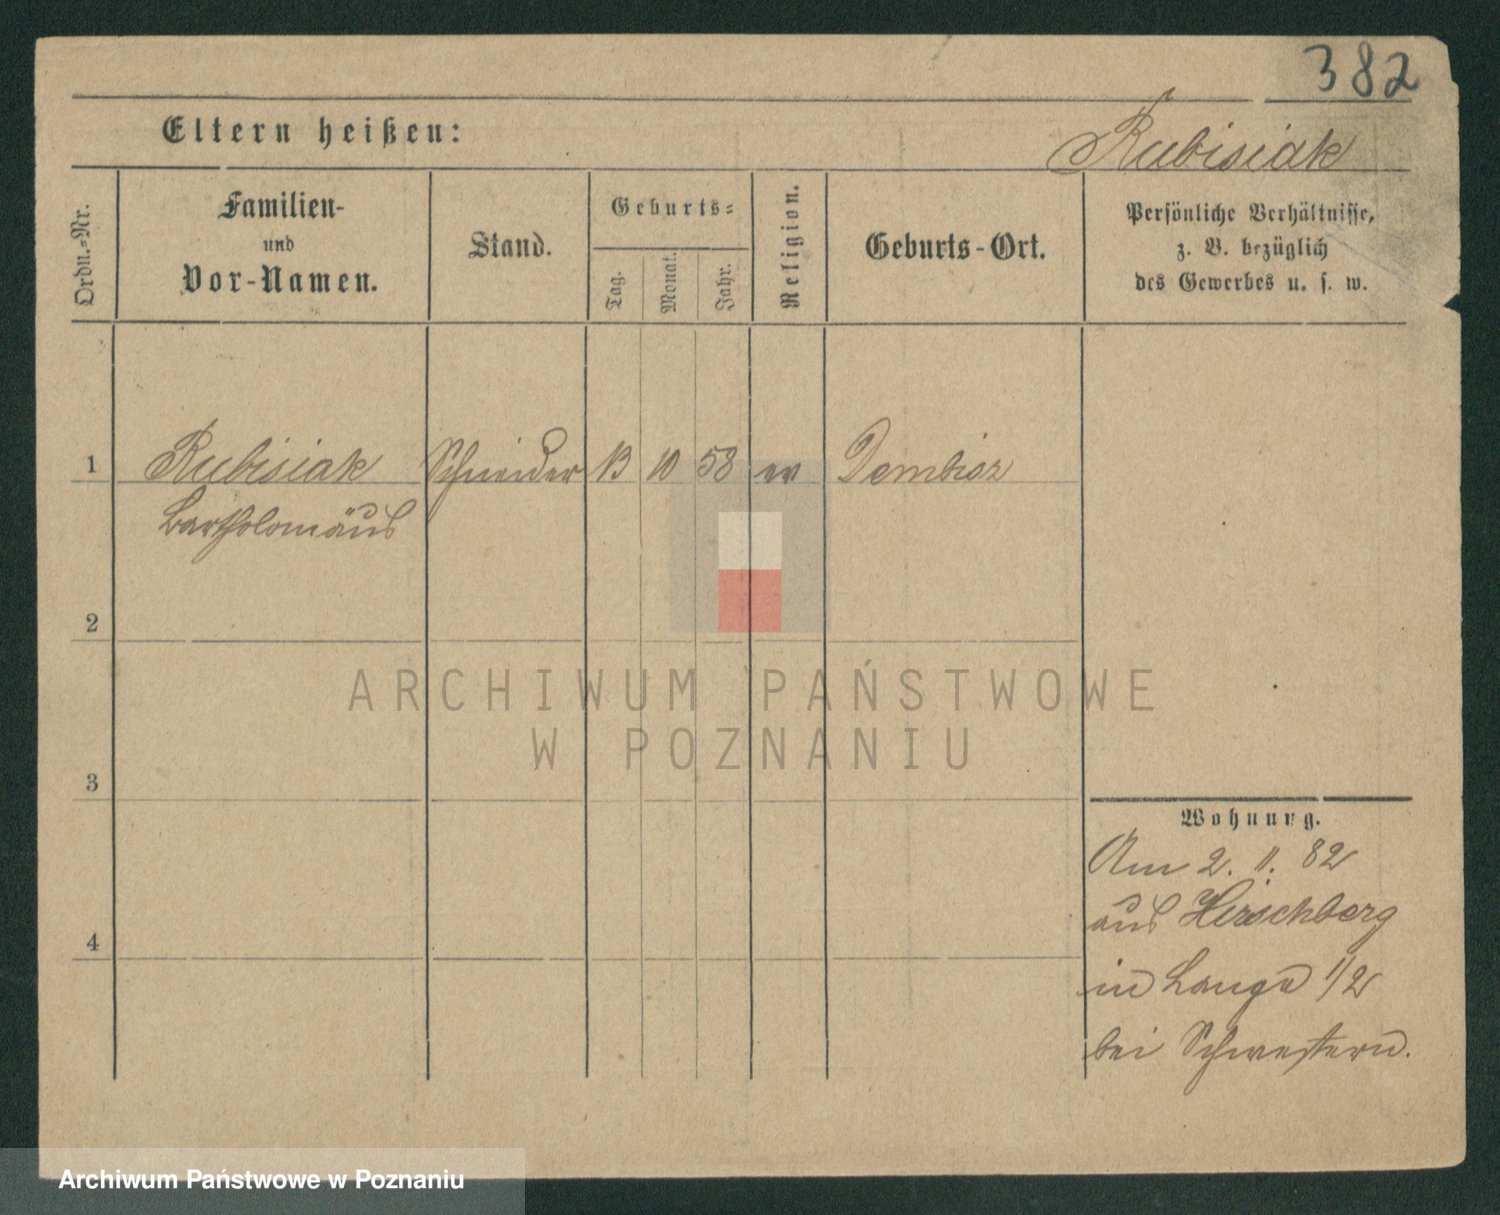 382
Eltern heißen:
Rubisiak
Ordn.-Nr.
Familien-
und
Vor-Namen.
Stand.
Geburts-
Tag.
Monat.
Jahr.
Religion.
Geburts-Ort.
Persönliche Verhältnisse,
z. B. bezüglich
des Gewerbes u. s. w.
1 Rubisiak Schneider 13 10 58 Dembicz
Bartholomäus
2
3
4
ARCHIWUM PAŃSTWOWE
W POZNANIU
Wohnung.
Am 2. 11. 82
aus Hirschberg
in Lange 1/2
bei Schwestern.
Archiwum Państwowe w Poznaniu